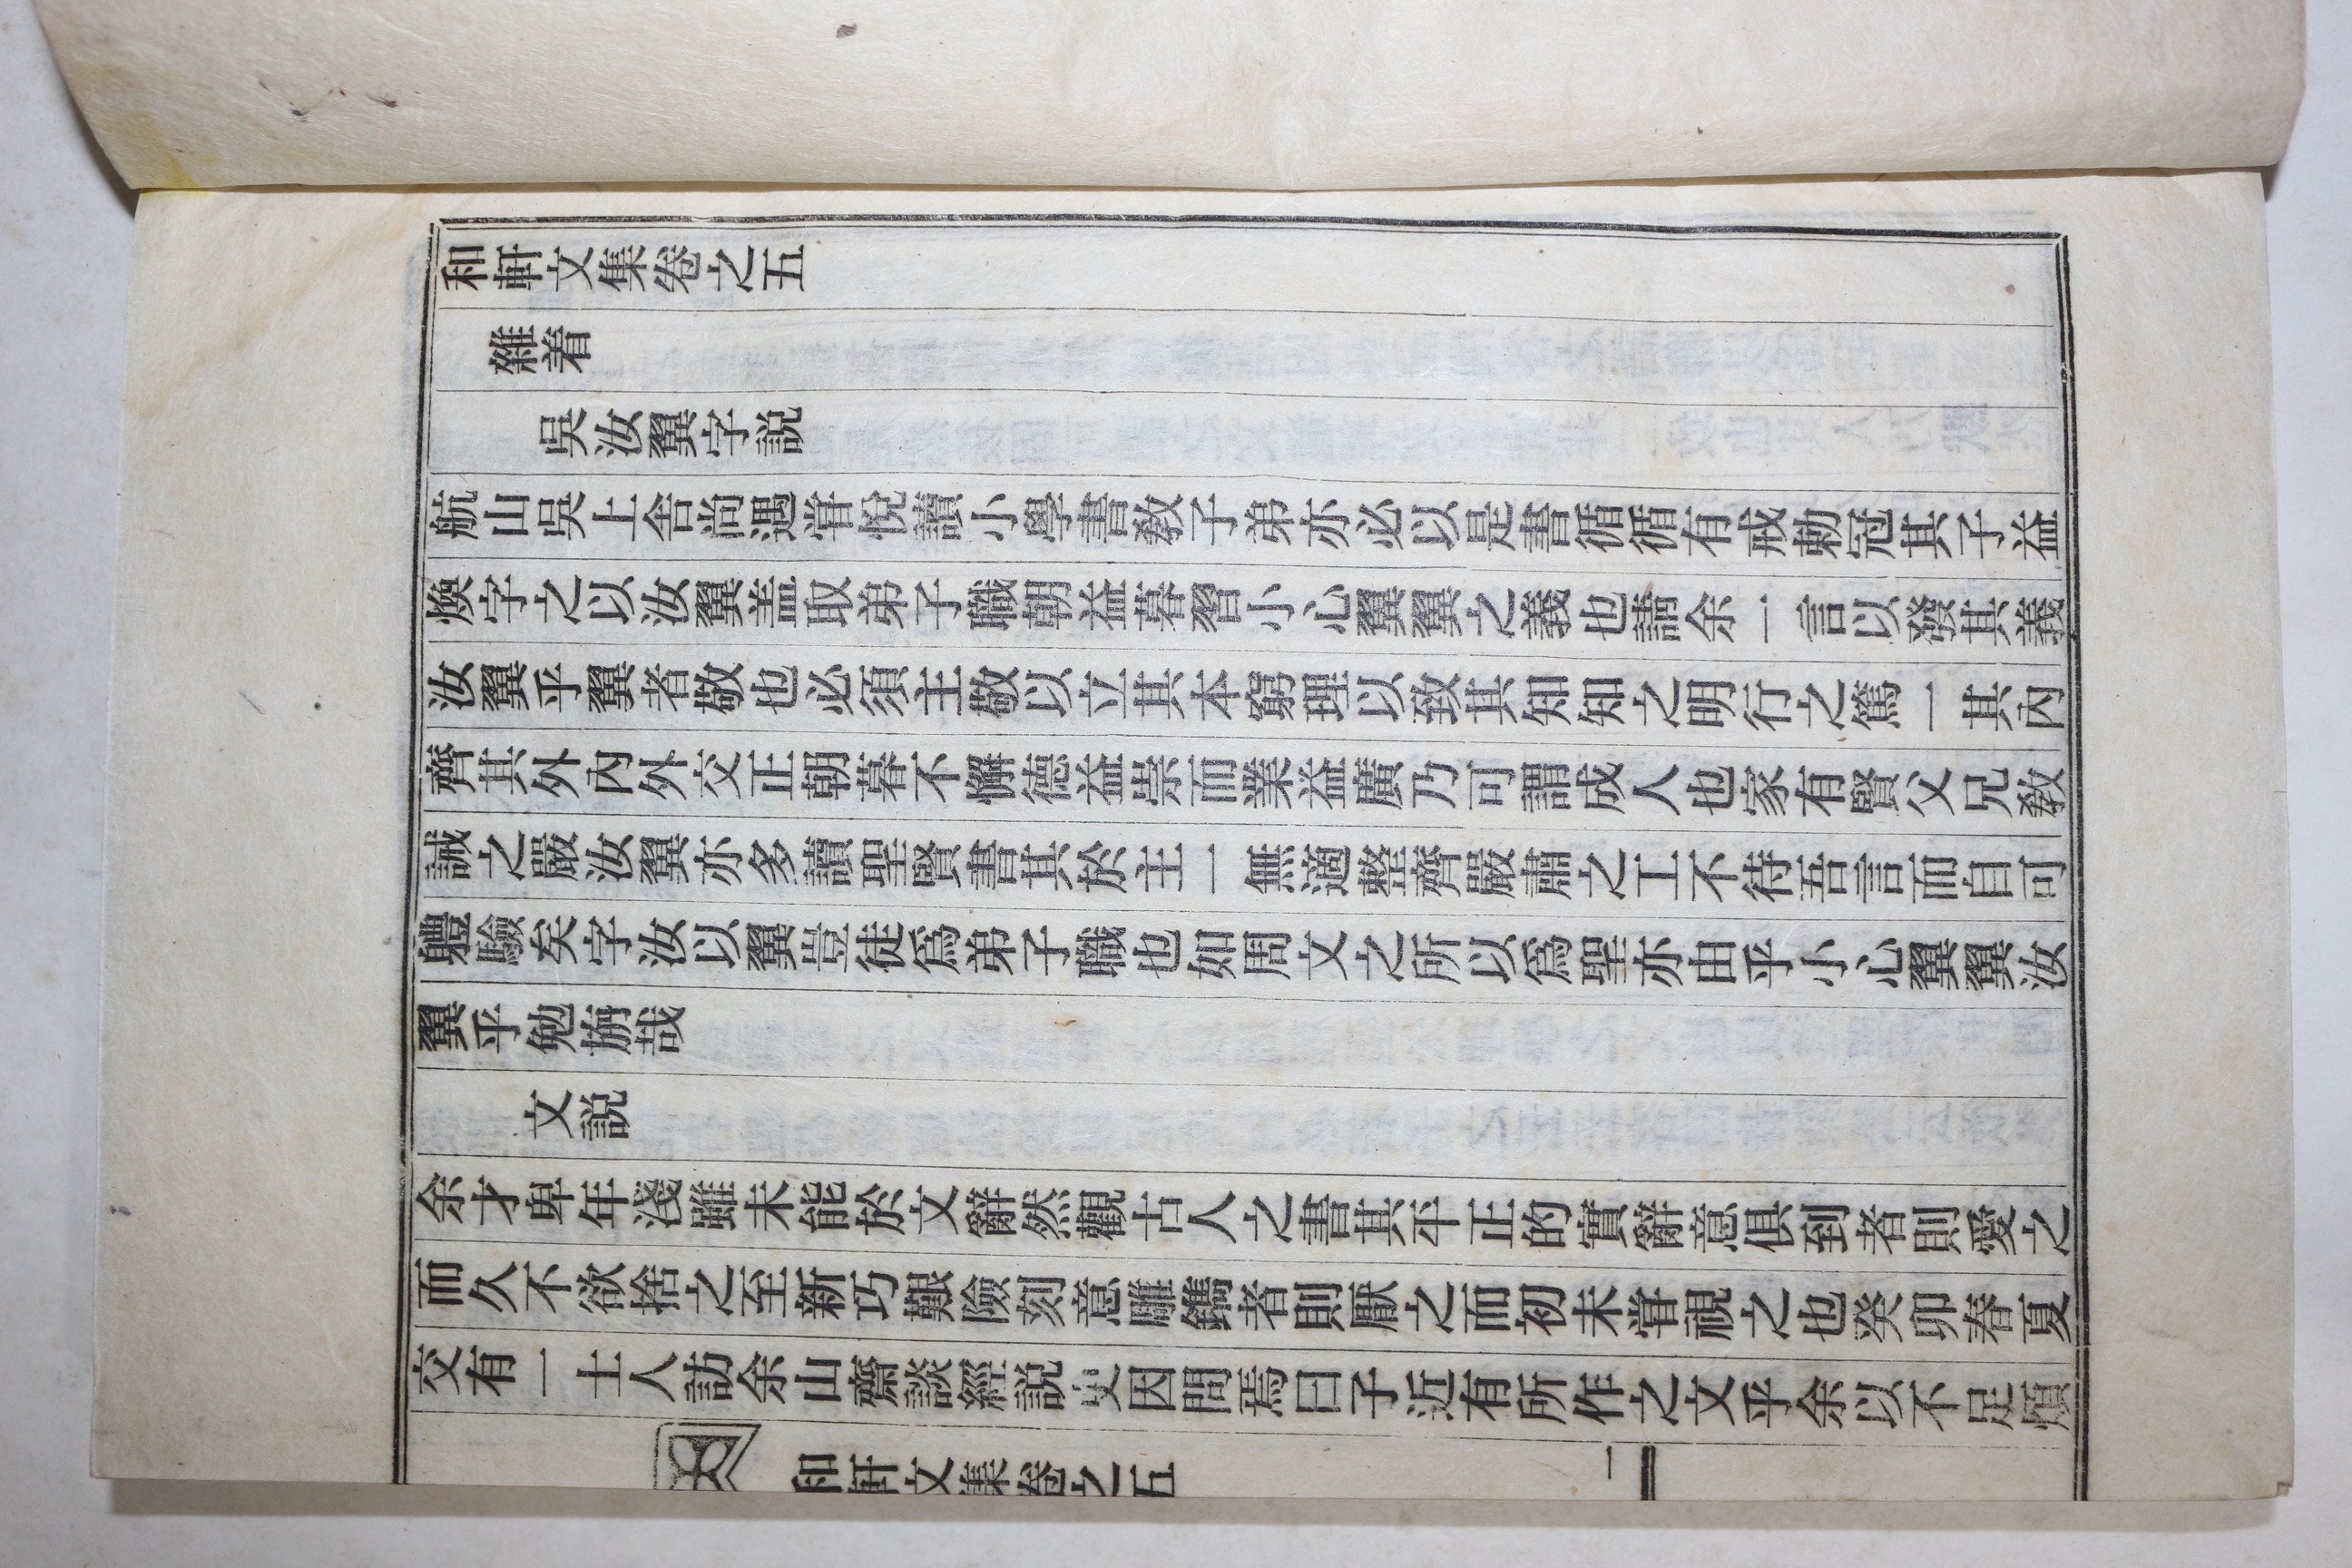 和軒文集卷之五
雜着
吳汝翼字説
航山吳上舍尚遇甞悅讀小學書敎子弟亦必以是書循循有戒勅冠其子益
煥字之以汝翼盖取弟子職朝益暮習小心翼翼之義也請余一言以發其義
汝翼乎翼者敬也必須主敬以立其本窮理以致其知知之明行之篤一其內
齊其外內外交正朝暮不懈德益崇而業益廣乃可謂成人也家有賢父兄敎
誡之嚴汝翼亦多讀聖賢書其於主一無適整齊嚴肅之工不待吾言而自可
軆驗矣字汝以翼豈徒爲弟子職也如周文之所以爲聖亦由乎小心翼翼汝
翼乎勉旃哉
文説
余才卑年淺雖未能於文辭然觀古人之書其平正的實辭意俱到者則愛之
而久不欲捨之至新巧艱險刻意雕鐫者則厭之而初未甞視之也癸卯春夏
交有一士人訪余山齋談經説史因問焉曰子近有所作之文乎余以不足煩
和軒文集卷之五
一